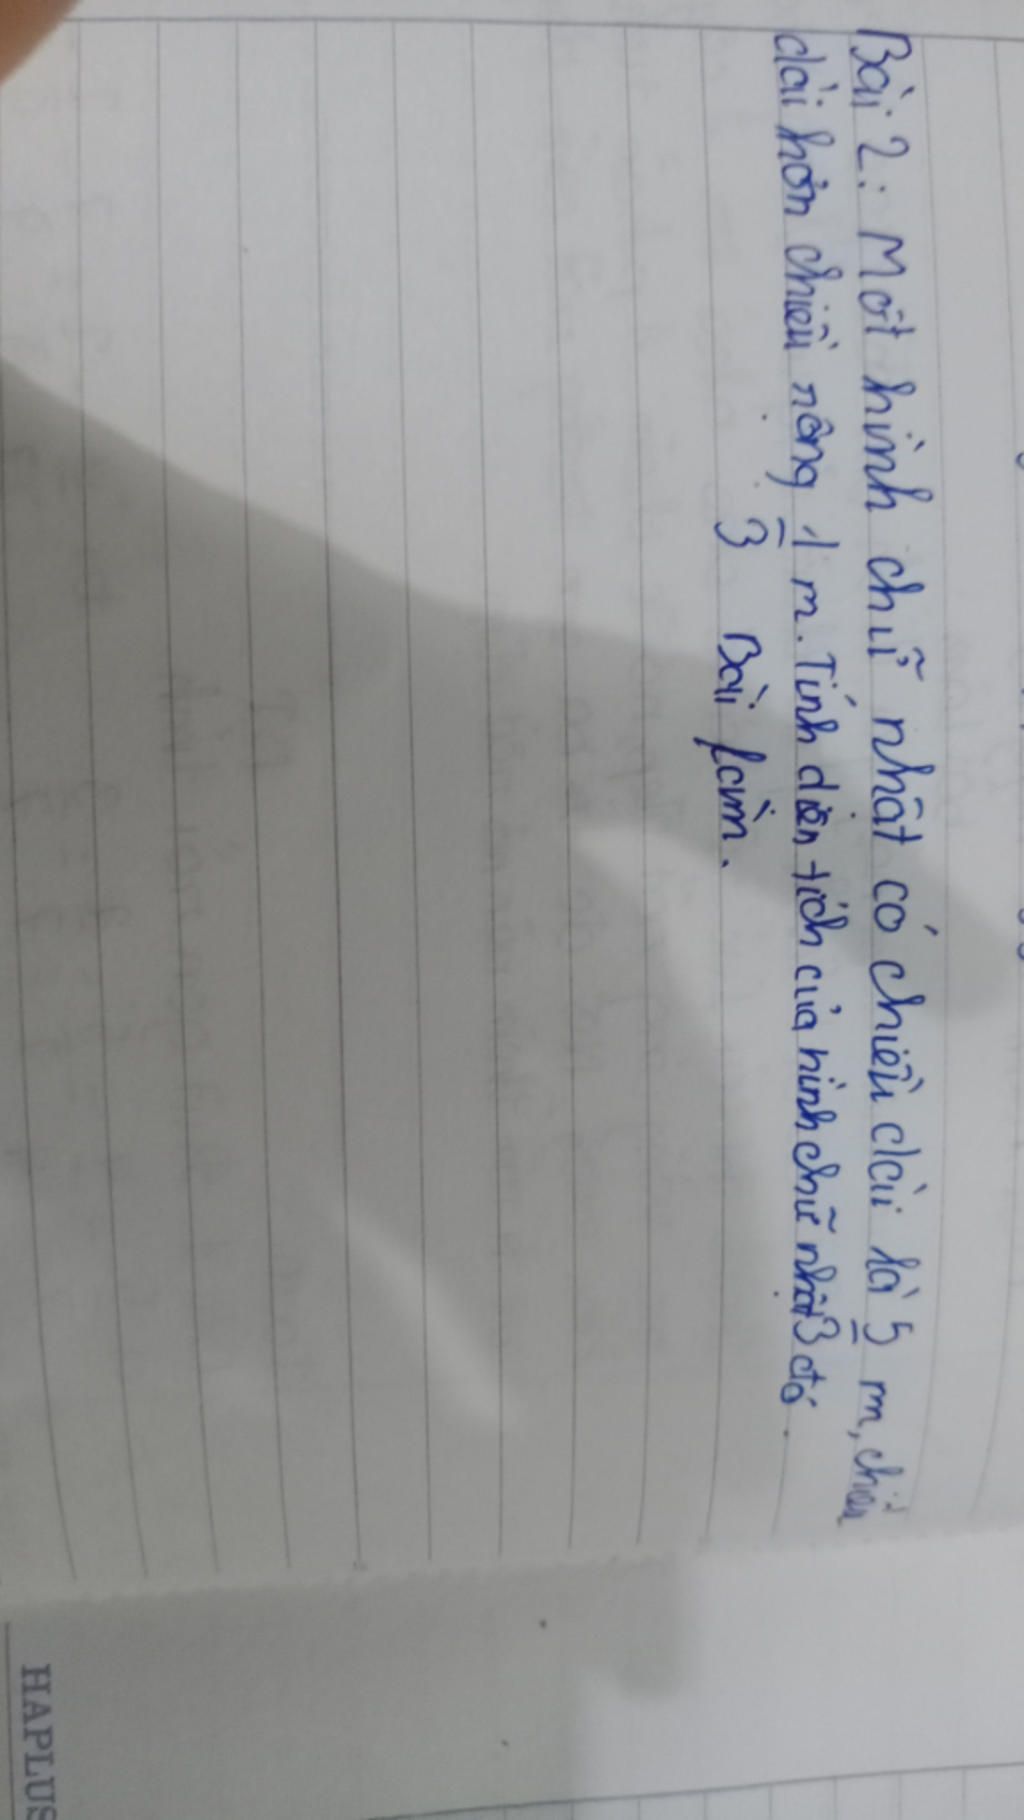 Bài 2: Một hình chữ nhật có chiều dài là 5/3 m, chiều
dài hơn chiều rộng 1/3 m. Tính diện tích của hình chữ nhật đó.
Bài làm.
HAPLUS